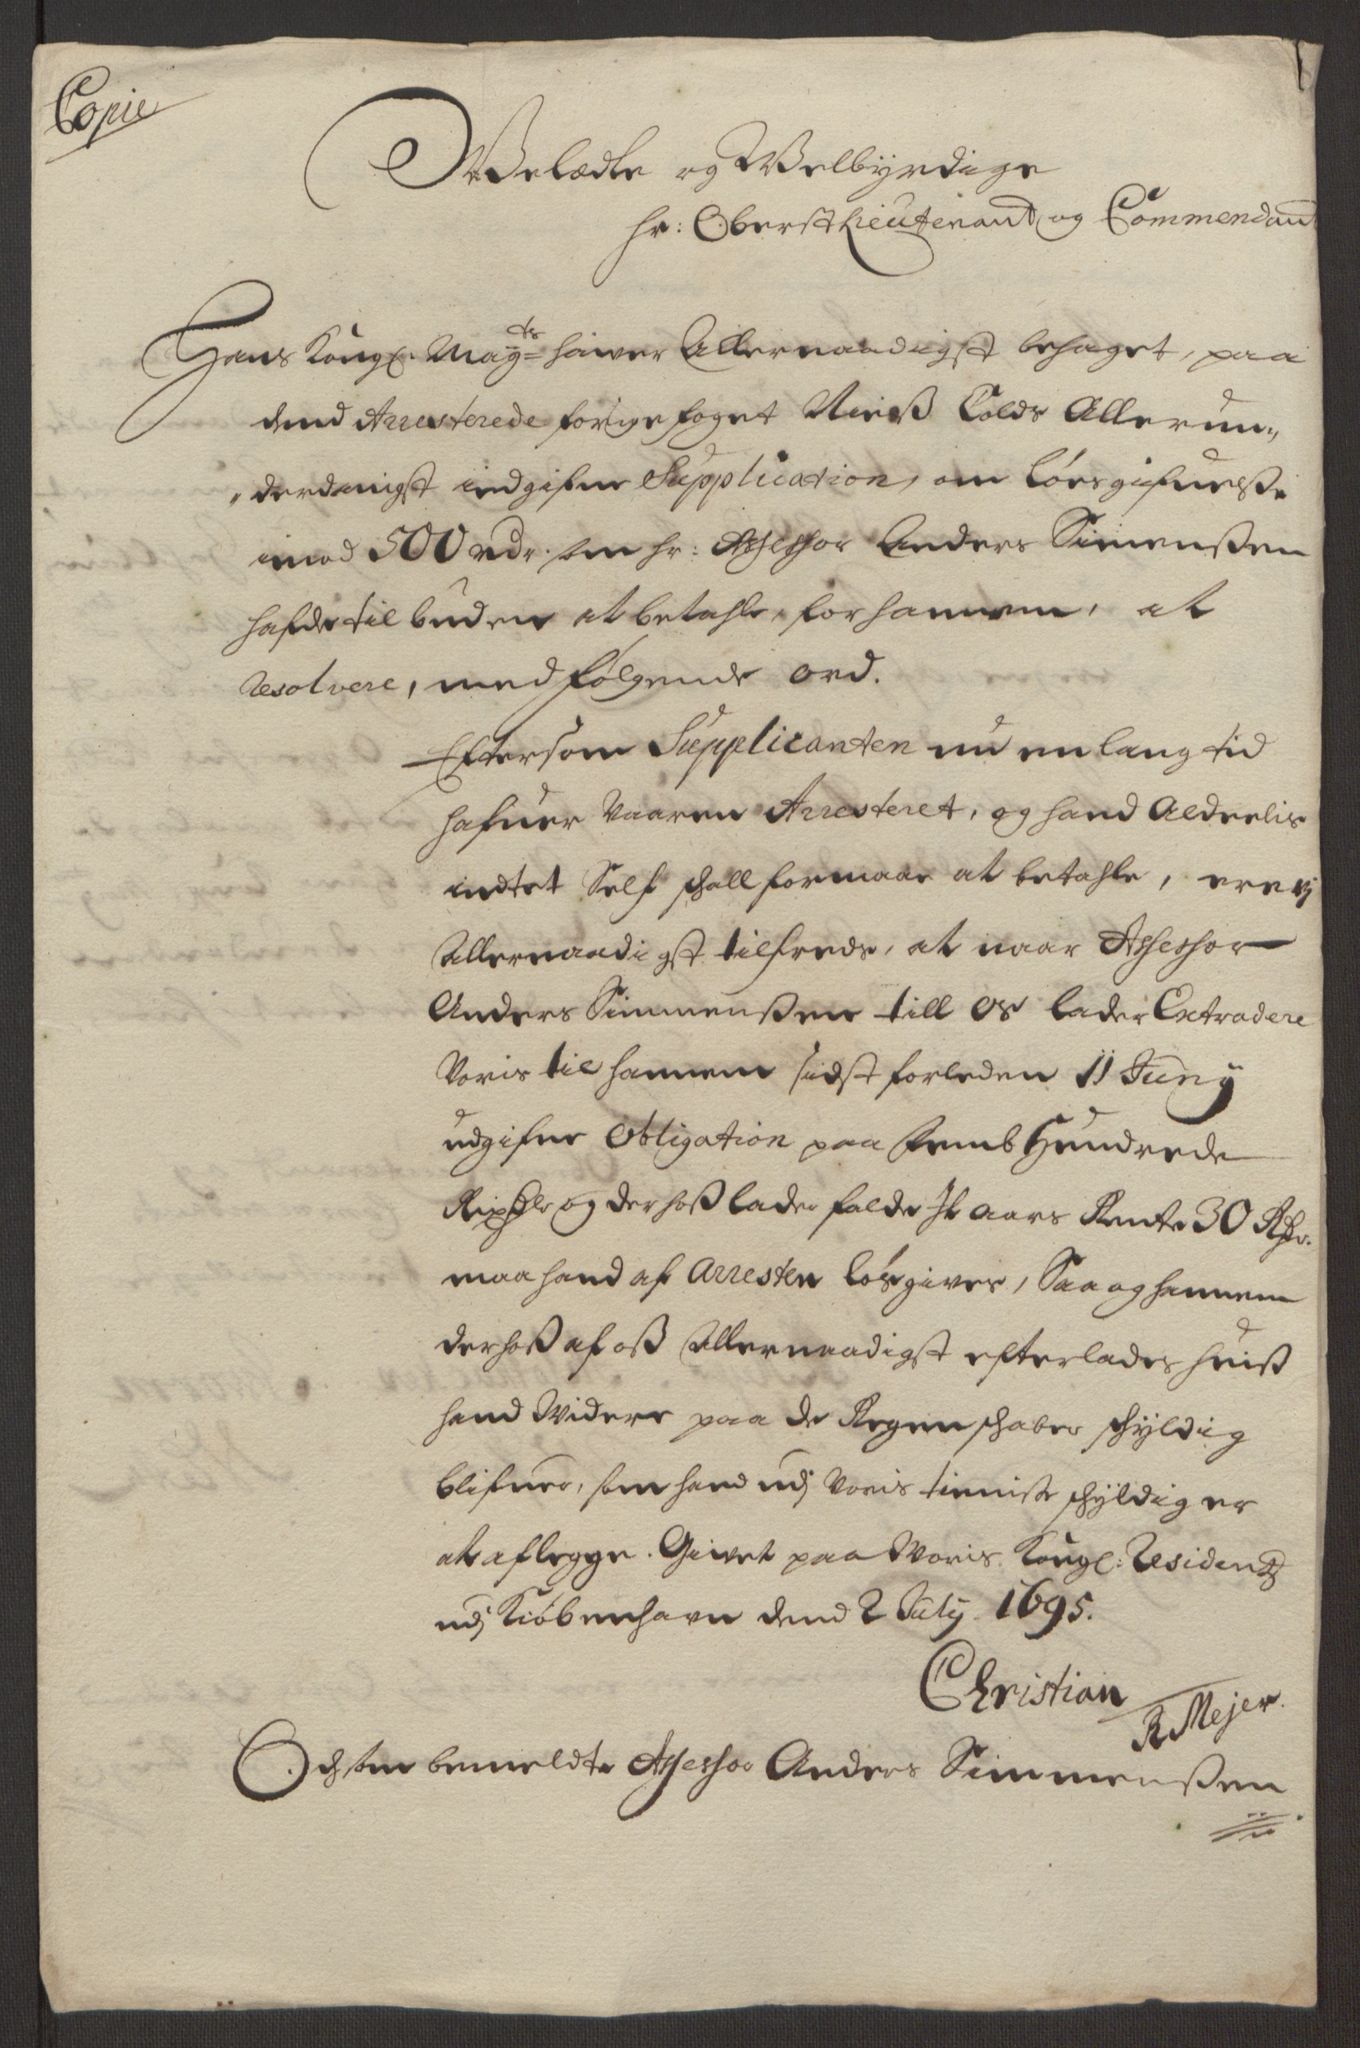 Copie
Welædle og Welbyrdige
hr: Oberstlieutenant og Commendant
Hans Kongl. May:ts hawer Allernaadigst behaget, paa
dend Arresterede forige foget Nielß Colds Allerun„
„derdanigst indgifne Supplication, om løesgifuelße
imod 500 rdr. som hr: Assessor Anders Simenßen
hafde tilbuden at betahle, for hannem, at
resolvere, med følgende ord.
Eftersom Supplicanten nu en lang tid
hafuer Vaaren Arresteret, og hand Aldeelis
indtet Self schall formaae at betahle, ere vj
Allernaadigst tilfreds, at naar Assessor
Anders Simmenßen till os lader Extradere
Voris til hannem sidst forleden 11 Juny
udgifne Obligation paa Femb Hundrede
Rixdlr og derhoß lader falde Jt aars Rente 30 Rdr.
maa hand af Arresten løsgives, Saa og hannem
derhoß af oß Allernaadigst efterlades huiß
hand Widere paa de Regenschaber schyldig
blifuer, som hand udj Voris tieniste schyldig er
at aflegge. Givet paa Woris Kongl: Residentz
udj Kiøbenhavn dend 2 July 1695.
Christian
R Mejer.
Och som bemeldte Assessor Anders Simmenßen